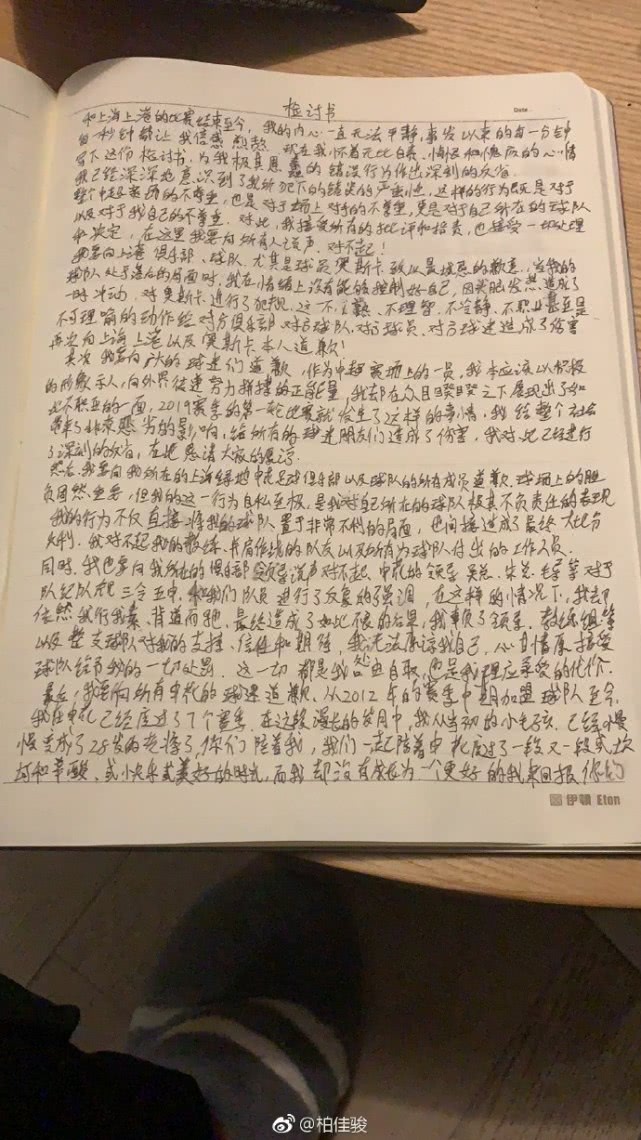 检讨书
Date.
和上海上港的比赛结束至今，我的内心一直无法平静，事发以来的每一分每
每一秒钟都让我倍感煎熬。现在我怀着无比自责、悔恨和愧疚的心情
写下这份检讨书，为我极其愚蠢的错误行为作出深刻的反省
我已经深深地意识到了我所犯下的错误的严重性，这样的行为既是对于
整个中超赛场的不尊重，也是对于场上对手的不尊重，更是对于自己所在的球队
以及对于我自己的不尊重。对此，我接受所有的批评和指责，也接受一切处理
和决定，在这里我要向所有人说声：对不起！
我要向上港俱乐部、球队、尤其是球员奥斯卡致以最诚恳的歉意，当我的
球队处于落后的局面时，我在情绪上没有能够控制好自己，因我脑发热造成了
一时冲动，对奥斯卡进行了犯规，这一不道德、不理智、不冷静、不职业甚至是
不可理喻的动作给对方俱乐部对方球队、对方球员、对方球迷造成了伤害
再次向上海上港以及奥斯卡本人道歉！
其次，我要向广大的球迷们道歉，作为中超赛场上的一员，我本应该以积极
的形象示人，向外界传递努力拼搏的正能量，我却在众目睽睽之下展现出了如
此不职业的一面，2019赛季的第一轮比赛就发生了这样的事情，我给整个社会
带来了非常恶劣的影响，给所有的球迷朋友们造成了伤害，我对此已经进行
了深刻的反省，在此恳请大家的原谅
然后，我要向我所在的上海绿地申花足球俱乐部以及球队的所有成员道歉，球场上的胜
负固然重要，但我的这一行为自私至极，是我对自己所在的球队极其不负责任的表现
我的行为不仅直接将我的球队置于非常不利的局面，也间接造成了最终大比分
失利。我对不起我的教练、并肩作战的队友以及所有为球队付出的工作人员
同时，我也要向我所在的俱乐部领导说声对不起，申花的领导吴总、朱总、毛导等对于
队纪队规三令五申，和我们队员进行了反复的强调，在这样的情况下，我却
依然我行我素、背道而驰，最终造成了如此不良的后果，我辜负了领导、教练组等
以及整支球队对我的支持、信任和期待，我无法原谅我自己，心甘情愿接受
球队给予我的一切处罚。这一切都是我咎由自取，也是我理应承受的代价。
最后，我要向所有申花的球迷道歉、从2012年的赛季中期加盟球队至今，
我在申花已经度过了7个赛季。在这段漫长的岁月中，我从当初的小毛孩，已经慢
慢变成了28岁的老将了，你们陪着我，我们一起陪着申花度过了一段又一段或坎
坷和辛酸、或小快乐或美好的时光，而我却没有成长为一个更好的我来回报你们
伊顿 Eton
@柏佳骏